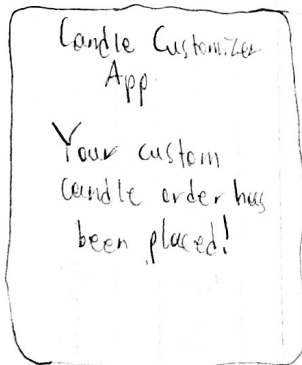 Candle Customizer
App
Your custom
candle order has
been placed!